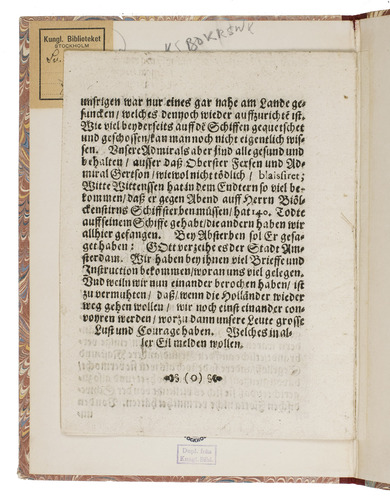 Kungl. Biblioteket
STOCKHOLM
unsrigen war nur eines gar nahe am Lande ge-
suncken / welches dennoch wieder auffzurichtē ist.
Wie viel beyderseits auff dē Schiffen gequetschet
und geschossen / kan man noch nicht eigentlich wis-
sen. Unsere Admirals aber sind alle gesund und
behalten / ausser daß Oberster Fersen und Ad-
miral Gertson / wiewol nicht tödlich / blaisiret;
Witte Wittenssen hat in dem Endtern so viel be-
kommen / daß er gegen Abend auff Herrn Biöl-
ckenstirns Schiff sterben müssen / hat 140. Todte
auff seinem Schiffe gehabt / die andern haben wir
allhier gefangen. Bey Absterben sol Er gesa-
get haben: GOtt verzeihe es der Stadt Am-
sterdam. Wir haben bey ihnen viel Brieffe und
Instruction bekommen / woran uns viel gelegen.
Vnd weiln wir nun einander berochen haben / ist
zu vermuhten / daß / wenn die Holländer wieder
weg gehen wollen / wir noch einst einander con-
voyren werden / worzu dann unsere Leute grosse
Lust und Courage haben. Welches in al-
ler Eil melden wollen.
(0)
Dupl. från
Kungl. Bibl.